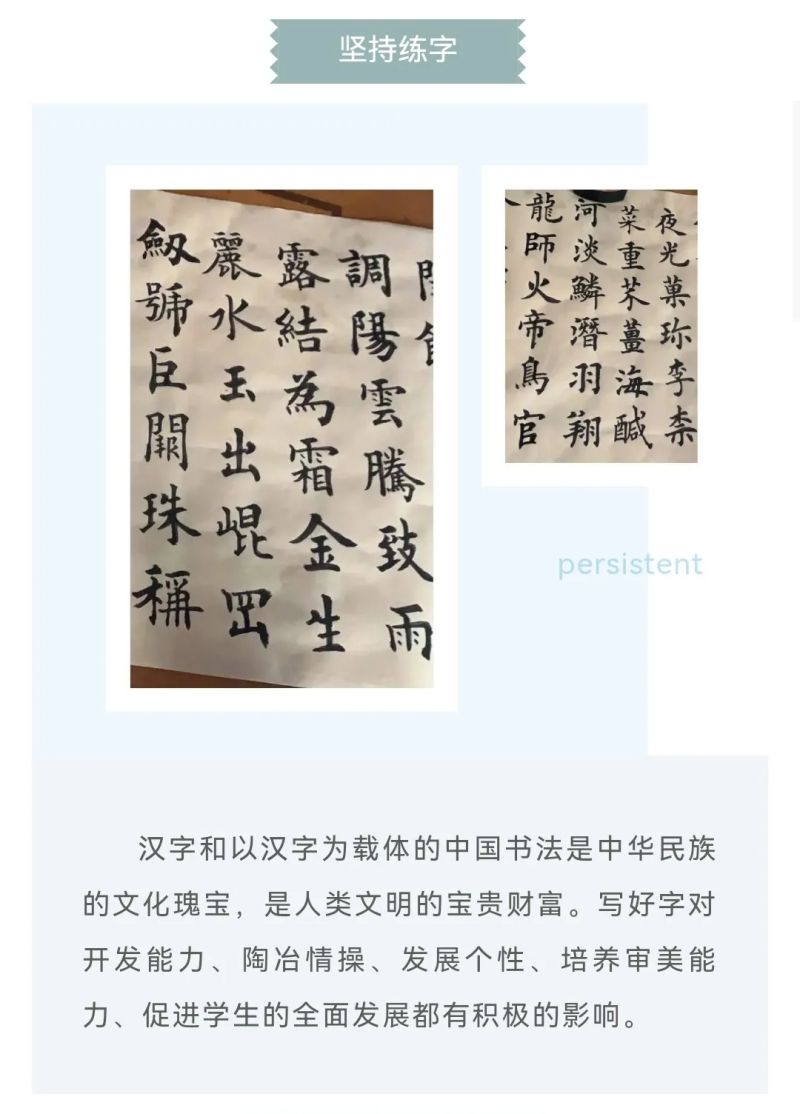 坚持练字
調陽雲騰致雨
露結為霜金生
麗水玉出崐岡
劔號巨闕珠稱
夜光菓珎李柰
菜重芥薑海醎
河淡鱗潛羽翔
龍師火帝鳥官
persistent
汉字和以汉字为载体的中国书法是中华民族
的文化瑰宝，是人类文明的宝贵财富。写好字对
开发能力、陶冶情操、发展个性、培养审美能
力、促进学生的全面发展都有积极的影响。